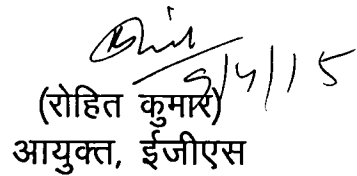 9/4/15
(रोहित कुमार)
आयुक्त, ईजीएस